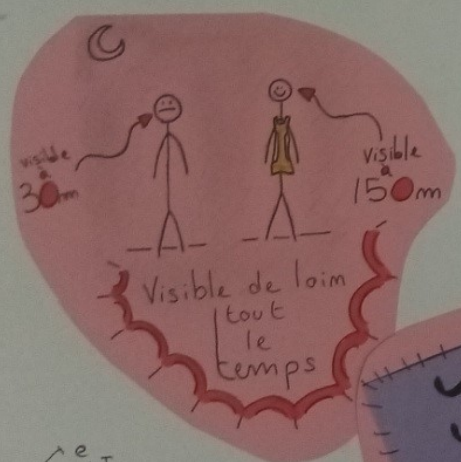 visible
à
30m
visible
à
150m
Visible de loin
tout
le
temps
e